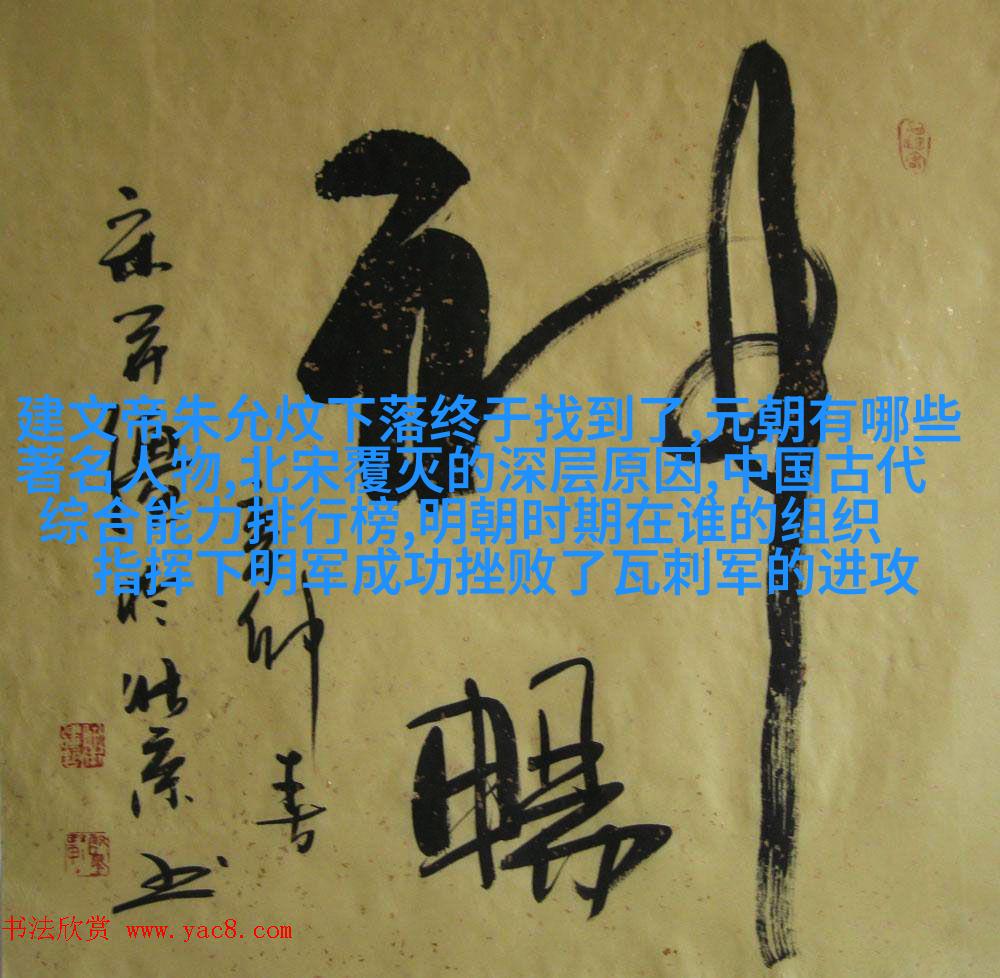 神暢
仲春
於北京书
建文帝朱允炆下落终于找到了,元朝有哪些
著名人物,北宋覆灭的深层原因,中国古代
综合能力排行榜,明朝时期在谁的组织
指挥下明军成功挫败了瓦剌军的进攻
书法欣赏 www.yac8.com